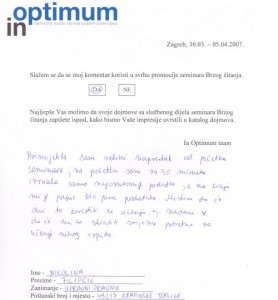 in optimum
Zagreb, 30.03. – 05.04.2007.
Slažem se da se moj komentar koristi u svrhu promocije seminara Brzog čitanja.
DA NE
Najljepše Vas molimo da svoje dojmove sa službenog dijela seminara Brzog
čitanja zapišete ispod, kako bismo Vaše impresije uvrstili u katalog dojmova.
In Optimum team
Primijetila sam veliki napredak od početka
seminara, na početku sam za 30 minuta
samo najosnovnije podatke, a na kraju
moj papir bio pun podataka. Mislim da će
mi to koristiti u učenju, tj. nadam se
da će mi to skratiti vrijeme potrebno za
učenje nekog ispita.
Ime - NIKOLINA
Prezime - FILIPČIĆ
Zanimanje - UPRAVNI PRAVNIK
Poštanski broj i mjesto - 49217 KRAPINSKE TOPLICE